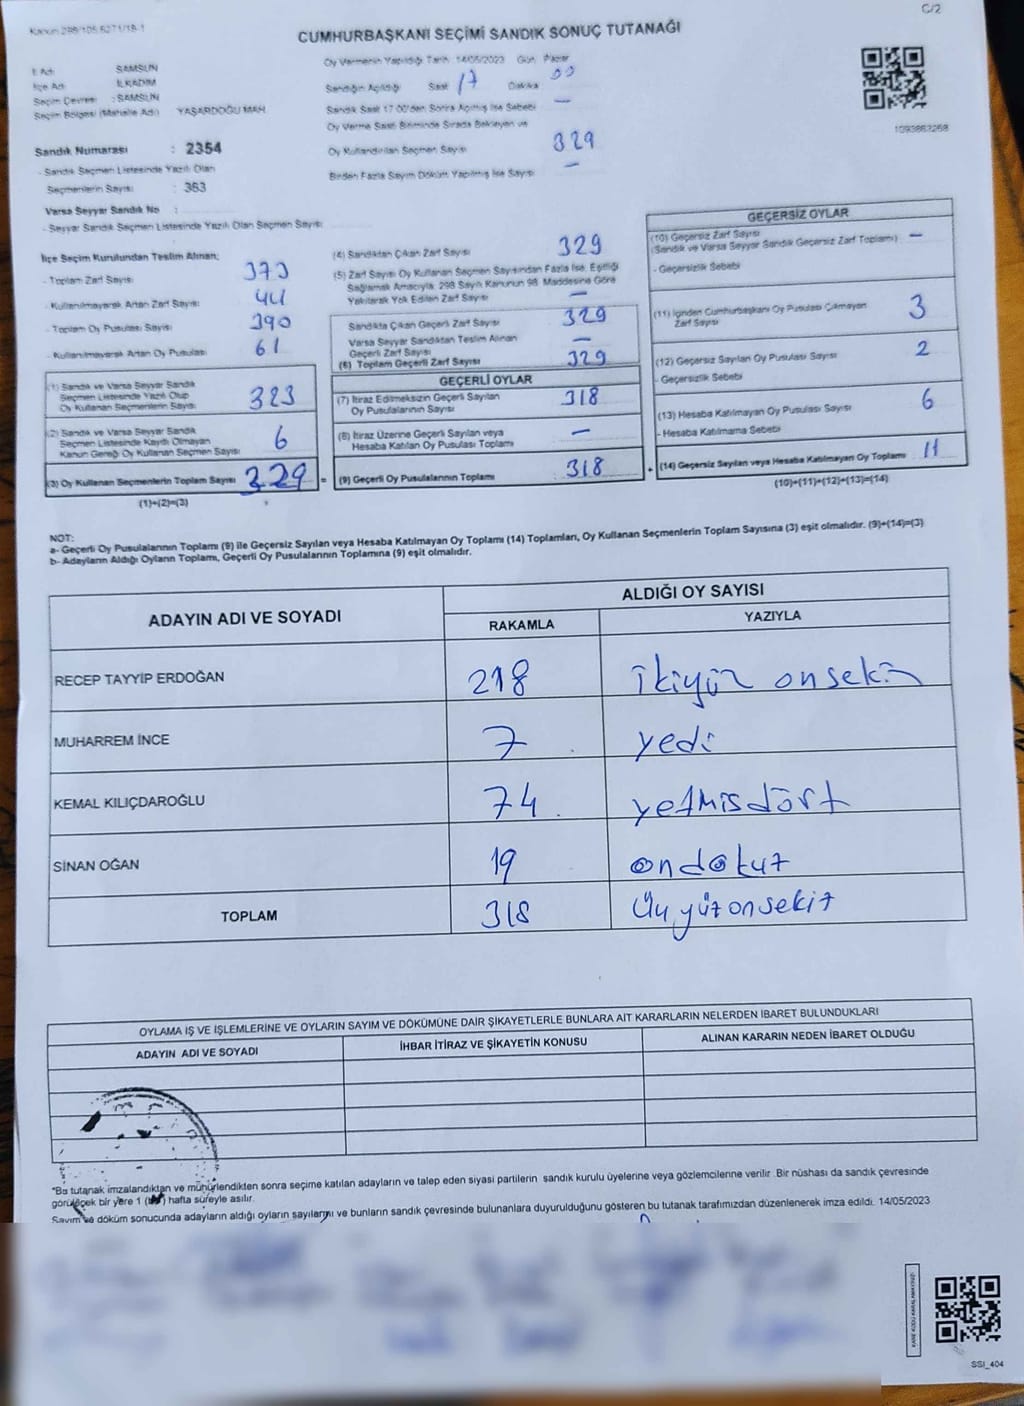 Kanun 298/105 6271/18-1
C/2
CUMHURBAŞKANI SEÇİMİ SANDIK SONUÇ TUTANAĞI
İl Adı : SAMSUN
İlçe Adı : İLKADIM
Seçim Çevresi : SAMSUN
Seçim Bölgesi (Mahalle Adı) YAŞARDOĞU MAH.
Sandık Numarası : 2354
- Sandık Seçmen Listesinde Yazılı Olan
Seçmenlerin Sayısı : 363
Varsa Seyyar Sandık No :
- Seyyar Sandık Seçmen Listesinde Yazılı Olan Seçmen Sayısı:
Oy Vermenin Yapıldığı Tarih: 14/05/2023 Gün: Pazar
Sandığın Açıldığı Saat 17 Dakika 00
Sandık Saat 17.00'den Sonra Açılmış İse Sebebi —
Oy Verme Saati Bitiminde Sırada Bekleyen ve
Oy Kullandırılan Seçmen Sayısı 329
Birden Fazla Sayım Döküm Yapılmış İse Sayısı —
1093863268
İlçe Seçim Kurulundan Teslim Alınan;
- Toplam Zarf Sayısı: 373
- Kullanılmayarak Artan Zarf Sayısı: 44
- Toplam Oy Pusulası Sayısı 390
- Kullanılmayarak Artan Oy Pusulası 61
(1) Sandık ve Varsa Seyyar Sandık
Seçmen Listesinde Yazılı Olup
Oy Kullanan Seçmenlerin Sayısı 323
(2) Sandık ve Varsa Seyyar Sandık
Seçmen Listesinde Kaydı Olmayan
Kanun Gereği Oy Kullanan Seçmen Sayısı 6
(3) Oy Kullanan Seçmenlerin Toplam Sayısı 329 =
(1)+(2)=(3)
(4) Sandıktan Çıkan Zarf Sayısı 329
(5) Zarf Sayısı Oy Kullanan Seçmen Sayısından Fazla İse, Eşitliği
Sağlamak Amacıyla, 298 Sayılı Kanunun 98. Maddesine Göre
Yakılarak Yok Edilen Zarf Sayısı —
Sandıkta Çıkan Geçerli Zarf Sayısı 329
Varsa Seyyar Sandıktan Teslim Alınan
Geçerli Zarf Sayısı —
(6) Toplam Geçerli Zarf Sayısı 329
GEÇERLİ OYLAR
(7) İtiraz Edilmeksizin Geçerli Sayılan
Oy Pusulalarının Sayısı 318
(8) İtiraz Üzerine Geçerli Sayılan veya
Hesaba Katılan Oy Pusulası Toplamı —
(9) Geçerli Oy Pusulalarının Toplamı 318 +
GEÇERSİZ OYLAR
(10) Geçersiz Zarf Sayısı
(Sandık ve Varsa Seyyar Sandık Geçersiz Zarf Toplamı) —
- Geçersizlik Sebebi
(11) İçinden Cumhurbaşkanı Oy Pusulası Çıkmayan
Zarf Sayısı 3
(12) Geçersiz Sayılan Oy Pusulası Sayısı 2
- Geçersizlik Sebebi
(13) Hesaba Katılmayan Oy Pusulası Sayısı 6
- Hesaba Katılmama Sebebi
(14) Geçersiz Sayılan veya Hesaba Katılmayan Oy Toplamı 11
(10)+(11)+(12)+(13)=(14)
NOT:
a- Geçerli Oy Pusulalarının Toplamı (9) ile Geçersiz Sayılan veya Hesaba Katılmayan Oy Toplamı (14) Toplamları, Oy Kullanan Seçmenlerin Toplam Sayısına (3) eşit olmalıdır. (9)+(14)=(3)
b- Adayların Aldığı Oyların Toplamı, Geçerli Oy Pusulalarının Toplamına (9) eşit olmalıdır.
ADAYIN ADI VE SOYADI ALDIĞI OY SAYISI
RAKAMLA YAZIYLA
RECEP TAYYİP ERDOĞAN 218 ikiyüz onsekiz
MUHARREM İNCE 7 yedi
KEMAL KILIÇDAROĞLU 74 yetmisdört
SİNAN OĞAN 19 ondokuz
TOPLAM 318 Üçyüzonsekiz
OYLAMA İŞ VE İŞLEMLERİNE VE OYLARIN SAYIM VE DÖKÜMÜNE DAİR ŞİKAYETLERLE BUNLARA AİT KARARLARIN NELERDEN İBARET BULUNDUKLARI
ADAYIN ADI VE SOYADI İHBAR İTİRAZ VE ŞİKAYETİN KONUSU ALINAN KARARIN NEDEN İBARET OLDUĞU
*Bu tutanak imzalandıktan ve mühürlendikten sonra seçime katılan adayların ve talep eden siyasi partilerin sandık kurulu üyelerine veya gözlemcilerine verilir. Bir nüshası da sandık çevresinde
görülecek bir yere 1 (bir) hafta süreyle asılır.
Sayım ve döküm sonucunda adayların aldığı oyların sayılarını ve bunların sandık çevresinde bulunanlara duyurulduğunu gösteren bu tutanak tarafımızdan düzenlenerek imza edildi. 14/05/2023
SSI_404